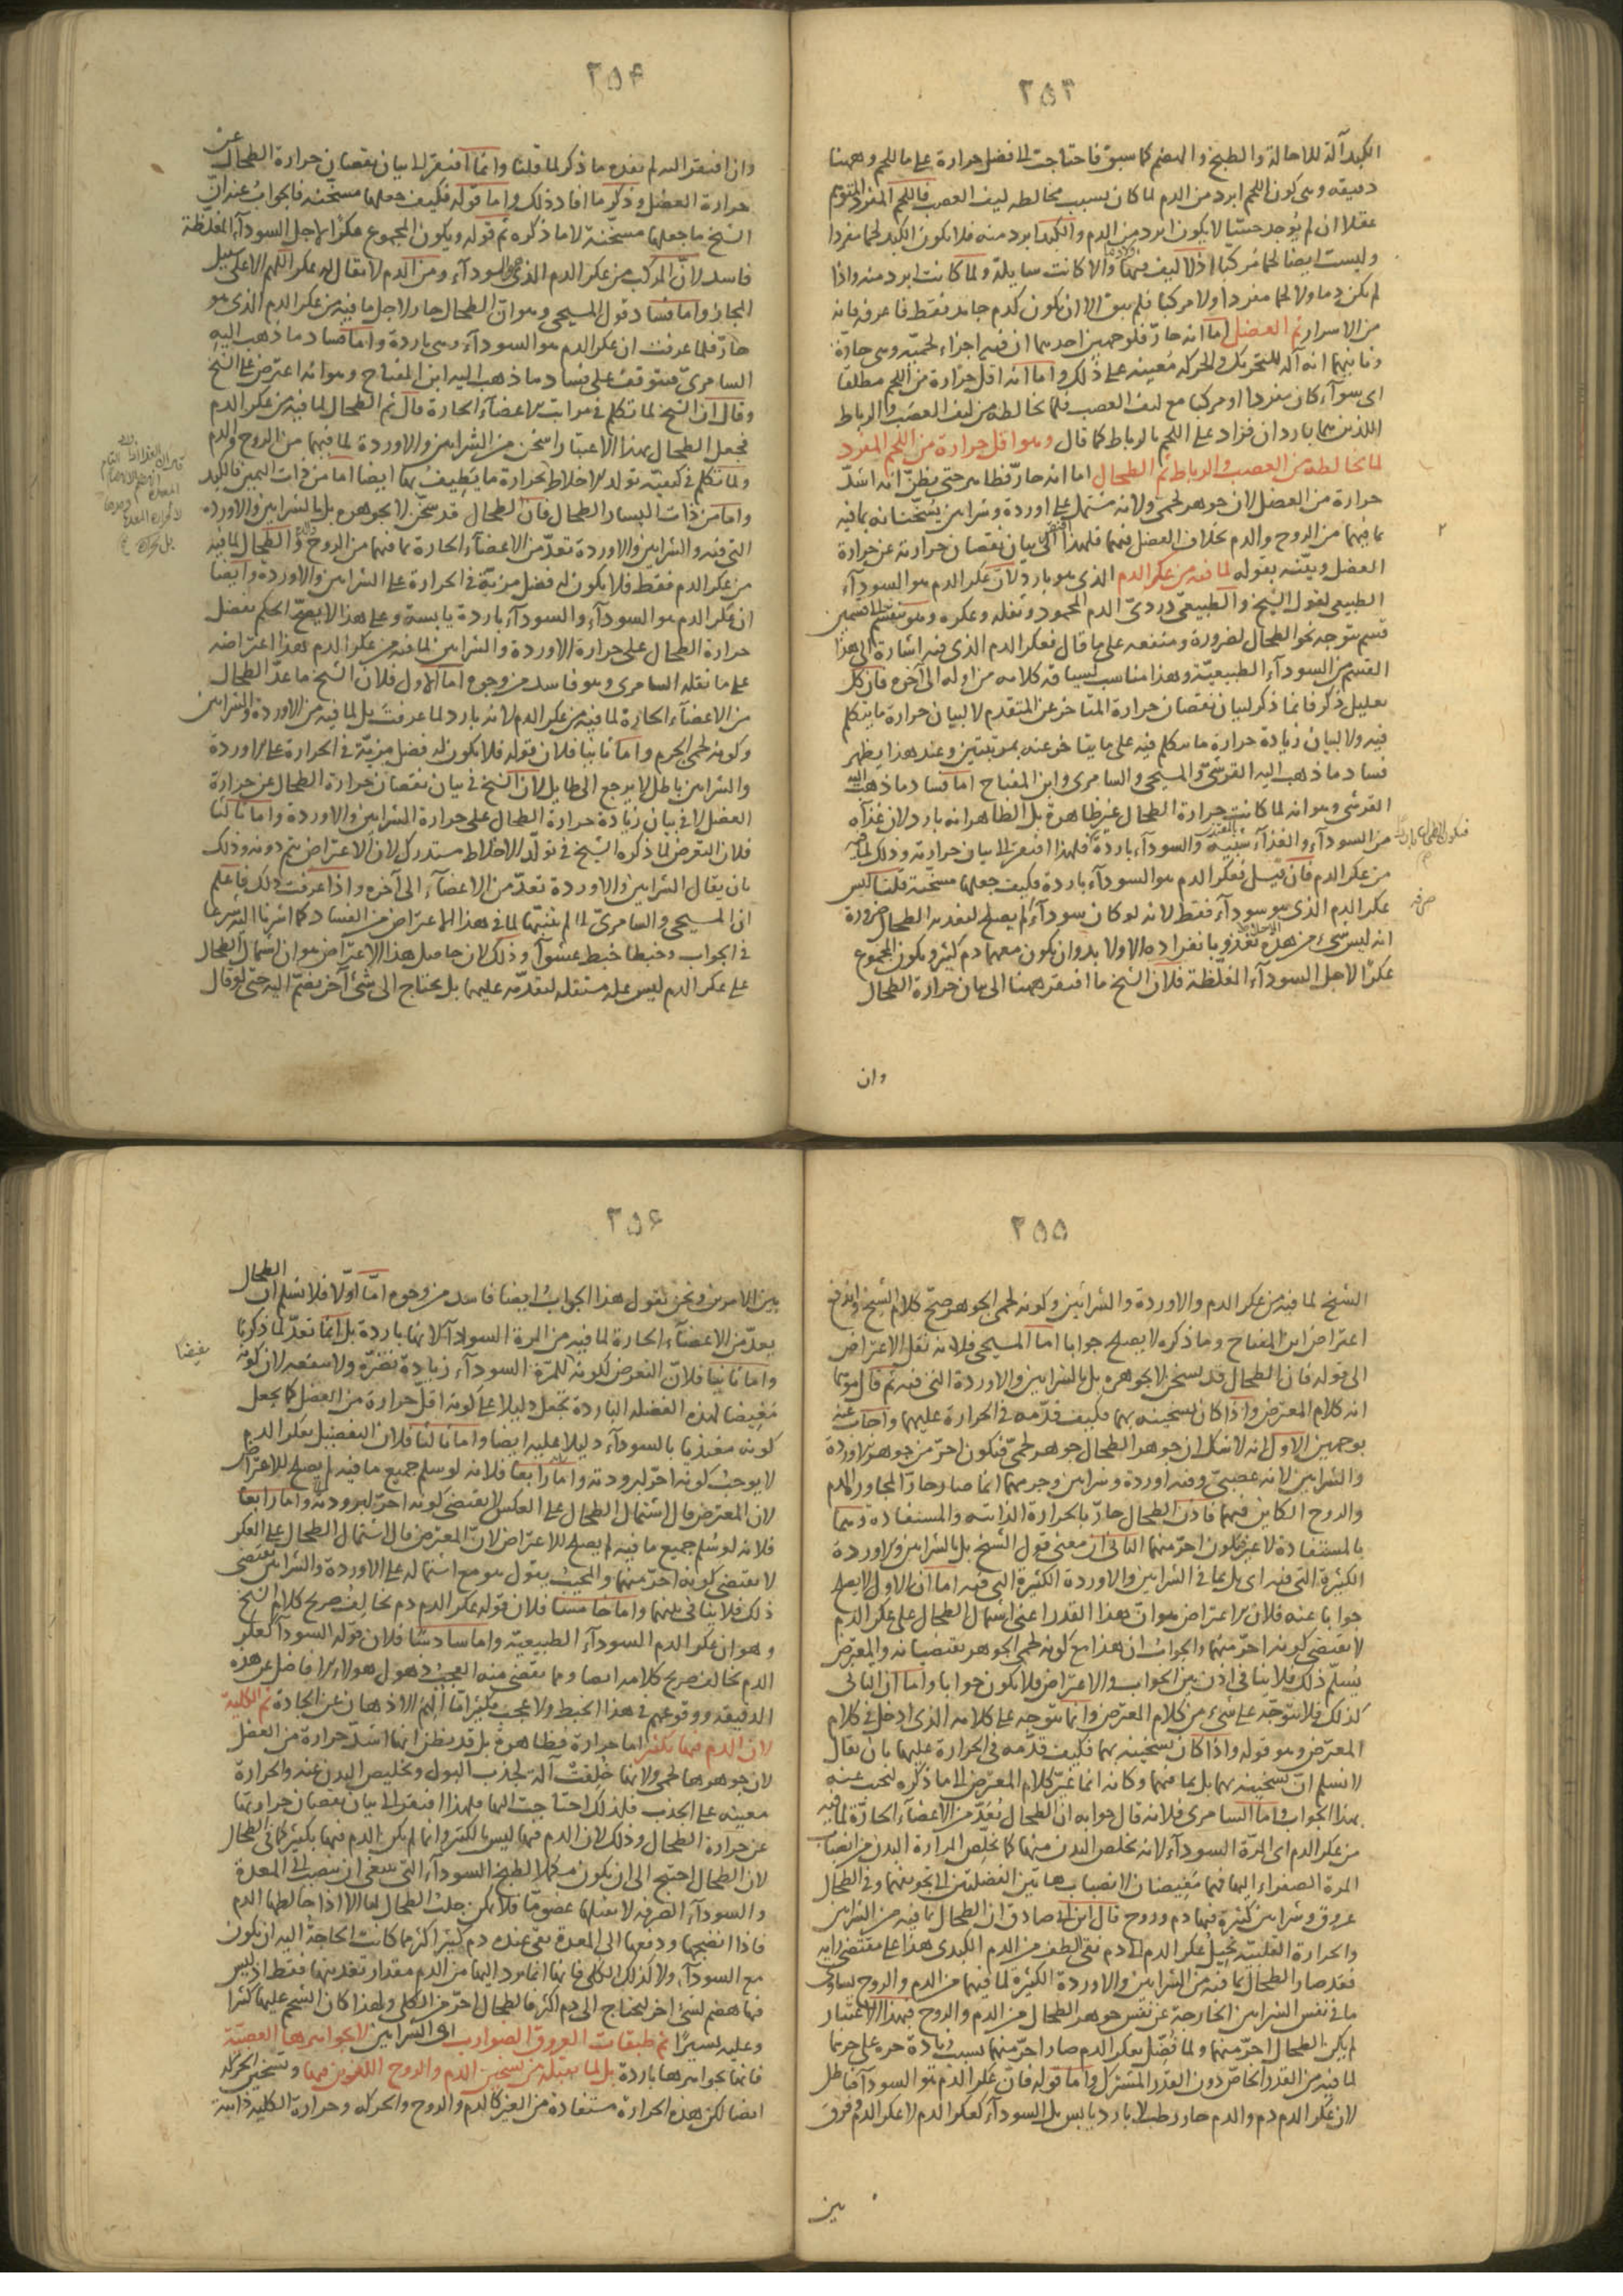 ٢٥٣
الكبد آلة للاحالة والطبخ والهضم كما سبق فاحتاجت الى فضل حرارة على ما للحم وههنا
دقيقة وهى كون اللحم ابرد من الدم لما كان بسبب مخالطة ليف العصب فاللحم المفرد المتوهم
عقلا ان لم يوجد حسّا لا يكون ابرد من الدم والكبد ابرد منه فلا يكون الكبد لحما مفردا
وليست ايضا لحما مركبا اذ لا ليف فيها والا كانت سايلة ولما كانت ابرد منه واذا
لم يكن دما ولا لحما مفردا ولا مركبا فلم يبق الا ان يكون كدم جامد فقط فاعرفه فانه
من الاسرار ثم العضل اما انه حارّ فلوجهين احدهما ان فيه اجزاء لحميّة وهى حارّة
وثانيهما انه آلة للتحريك والحركة مُعينة على ذلك واما انه اقل حرارة من اللحم مطلقا
اى سوآء كان مفردا او مركبا مع ليف العصب فلما يخالطه من ليف العصب والرباط
اللذين هما باردان فزاد على اللحم بالرباط كما قال وهو اقل حرارة من اللحم المفرد
لما يخالطه من العصب والرباط ثم الطحال اما انه حارّ فظاهر حتى يظنّ انه اشدّ
حرارة من العضل لان جوهره لحمى ولانه مشتمل على اوردة وشرايين يسخّنانه بما فيه
بما فيهما من الروح والدم بخلاف العضل فيهما فلهذا افتقر الى بيان نقصان حرارته عن حرارة
العضل وبيّنه بقوله لما فيه من عكر الدم الذى هو بارد لان عكر الدم هو السودآء
الطبيعى لقول الشيخ والطبيعىّ دردىّ الدم المحمود وثفله وعكره وهو ينقسم الى قسمين
قسم يتوجه نحو الطحال لضرورة ومنفعة على ما قال فعكر الدم الذى فيه اشارة الى هذا
القسم من السودآء الطبيعيّة وهذا مناسب لسياقة كلامه من اوله الى آخره فان كل
تعليل ذكر فانما ذكر لبيان نقصان حرارة المتاخر عن المتقدم لا لبيان حرارة ما يتكلم
فيه ولا لبيان زيادة حرارة ما يتكلم فيه على ما يتاخر عنه بمرتبتين وعند هذا يظهر
فساد ما ذهب اليه القرشىّ والمسيحى والسامرى وابن المفتاح اما فساد ما ذهب اليه
القرشى وهو انه لما كانت حرارة الطحال غير ظاهرة بل الظاهر انه بارد لان غذآه
من السودآء والغذآء شبيه بالمغتذى والسودآء باردة فلهذا افتقر الى بيان حرارته وذلك لما فيه
من عكر الدم فان قيل فعكر الدم هو السودآء باردة فكيف جعلها مسخّنة قلنا ليس
عكر الدم الذى هو سودآء فقط لانه لو كان سودآء لم يصلح لتغذية الطحال ضرورة
انه ليس شىء من هذه تغذو بانفراده الا ولا بد وان يكون معها دم كثير ويكون المجموع
عكرًا لاجل السودآء المغلّظة فلان الشيخ ما افتقر ههنا الى بيان حرارة الطحال
وان
٢٥٤
وان افتقر اليه لم يفده ما ذكر لما قلنا وانما افتقر الى بيان نقصان حرارة الطحال عن
حرارة العضل وذكر ما افاد ذلك واما قوله فكيف جعلها مسخّنة فالجواب عنه انّ
الشيخ ما جعلها مسخّنة لا ما ذكره ثم قوله ويكون المجموع عكرًا لاجل السودآء المغلظة
فاسد لانّ المركب من عكر الدم الذى هو السودآء ومن الدم لا يقال له عكر اللهم الا على سبيل
المجاز واما فساد قول المسيحى وهو انّ الطحال حار لاجل ما فيه من عكر الدم الذى هو
حارّ فلما عرفت ان عكر الدم هو السودآء وهى باردة واما فساد ما ذهب اليه
السامرىّ فيتوقف على فساد ما ذهب اليه ابن المفتاح وهو انه اعترض على الشيخ
وقال ان الشيخ لما تكلم فى مراتب الاعضآء الحارة قال ثم الطحال لما فيه من عكر الدم
فجعل الطحال بهذا الاعتبار اسخن من الشرايين والاوردة لما فيهما من الروح والدم
ولما تكلم فى كيفيّة تولد الاخلاط الحرارة ما يَطِيفُ بها ايضا اما من ذات اليمين فالكبد
واما من ذات اليسار الطحال فان الطحال قد سخّن لا بجوهره بل بالشرايين والاوردة
التى فيه والشرايين والاوردة تعدّ من الاعضآء الحارة بما فيهما من الروح والدم والطحال لما فيه
من عكر الدم فقط فلا يكون له فضل مزيّة فى الحرارة على الشرايين والاوردة وايضا
ان عكر الدم هو السودآء والسودآء باردة يابسة وعلى هذا لا يصحّ الحكم بفضل
حرارة الطحال على حرارة الاوردة والشرايين لما فيه من عكر الدم هذا اعتراضه
على ما نقله السامرى وهو فاسد من وجوه اما الاول فلان الشيخ ما عدّ الطحال
من الاعضآء الحارة لما فيه من عكر الدم لانه بارد لما عرفت بل لما فيه من الاوردة والشرايين
وكونه لحمى الجرم واما ثانيا فلان قوله فلا يكون له فضل مزيّة فى الحرارة على الاوردة
والشرايين باطل لا يرجع الى طايل لان الشيخ فى بيان نقصان حرارة الطحال عن حرارة
العضل لا فى بيان زيادة حرارة الطحال على حرارة الشرايين والاوردة واما ثالثا
فلان التعرض لما ذكره الشيخ فى تولّد الاخلاط مستدرك لان الاعتراض يتم دونه وذلك
بان يقال الشرايين والاوردة تعدّ من الاعضآء الى آخره واذا عرفت ذلك فاعلم
ان المسيحى والسامرىّ لما لم يتنبّها لما فى هذا الاعتراض من الفساد كما اشرنا اليه شرعا
فى الجواب وخبطا خبط عشوآء وذلك لان حاصل هذا الاعتراض هو ان اشتمال الطحال
على عكر الدم ليس علة مستقلة لتقدّمه عليهما بل يحتاج الى شىء آخر يضمّ اليه حتى لو قال
٢٥٥
الشيخ لما فيه من عكر الدم والاوردة والشرايين وكونه لحمى الجوهر صحّ كلام الشيخ واندفع
اعتراض ابن المفتاح وما ذكره لا يصلح جوابا اما المسيحى فلانه نقل الاعتراض
الى قوله فان الطحال قد يسخن لا بجوهره بل بالشرايين والاوردة التى فيه ثم قال موهما
انه كلام المعترض واذا كان تسخينه بهما فكيف قدّمه فى الحرارة عليهما واجاب عنه
بوجهين الاول انه لا شك ان جوهر الطحال جوهر لحمىّ فيكون احرّ من جوهر الاوردة
والشرايين لانه عصبىّ وفيه اوردة وشرايين وجرمهما انما صار حارّا لمجاورة الدم
والروح الكاين فيهما فاذن الطحال حارّ بالحرارة الذاتية والمستفادة وهما
بالمستفادة لا غير فيكون احرّ منهما الثانى ان معنى قول الشيخ بل بالشرايين والاوردة
الكثيرة التى فيه اى بل بما فى الشرايين والاوردة الكثيرة التى فيه اما ان الاول لا يصلح
جوابا عنه فلان الاعتراض هو انّ بهذا القدر اعنى اشتمال الطحال على عكر الدم
لا يقتضى كونه احرّ منهما والجواب ان هذا مع كونه لحمى الجوهر يقتضيانه والمعترض
يُسلّم ذلك فلا ينافى اذن بين الجواب والاعتراض فلا يكون جوابا واما ان الثانى
كذلك فلا يتوجّه على شىء من كلام المعترض وانما يتوجه على كلامه الذى ادخل فى كلام
المعترض وهو قوله واذا كان تسخينه بهما فكيف قدّمه فى الحرارة عليهما بان يقال
لا نسلم انّ تسخينه بهما بل بما فيهما وكانه انما غيّر كلام المعترض الى ما ذكره ليجيب عنه
بهذا الجواب واما السامرى فلانه قال جوابه ان الطحال يُعَدّ من الاعضآء الحارّة لما فيه
من عكر الدم اى المرّة السودآء لانه يخلص البدن منها كما يخلّص المرارة البدن من انصباب
المرة الصفراء اليها فهما مُغيضان لانصباب هاتين الفضلتين الى تجويفهما وفى الطحال
عروق وشرايين كثيرة فيهما دم وروح قال ابن ابى صادق ان الطحال بما فيه من الشرايين
والحرارة القلبيّة تحيل عكر الدم الى دم نقى الطف من الدم الكبدى هذا على مقتضى رايه
فقد صار الطحال بما فيه من الشرايين والاوردة الكثيرة لما فيهما من الدم والروح يساوى
ما فى نفس الشرايين الخارجة عن نفس جوهر الطحال من الدم والروح فبهذا الاعتبار
لم يكن الطحال احرّ منهما ولما فُضّل بعكر الدم صار احرّ منهما بسبب زيادة حره على حرهما
لما فيه من القدر الخاصّ دون القدر المشترك واما قوله فان عكر الدم هو السودآء فباطل
لان عكر الدم دم والدم حار رطب لا بارد يابس بل السودآء كعكر الدم لا عكر الدم وفرق
بين
٢٥٦
بين الامرين ونحن نقول هذا الجواب ايضا فاسد من وجوه امّا اوّلا فلا نسلم ان الطحال
يعدّ من الاعضآء الحارة لما فيه من المرة السودآء لانها باردة بل انما تعدّ لما ذكرنا
واما ثانيا فلانّ التعرض لكونه للمرّة السودآء زيادة تضرّه ولا تنفعه لان كونه
مَغِيضا لهذه الفضلة الباردة يجعل دليلا على كونه اقلّ حرارة من العضل كما يجعل
كونه مغتذيا بالسودآء دليلا عليه ايضا واما ثالثا فلان التفضيل بعكر الدم
لا يوجب كونه احرّ لبرودته واما رابعا فلانه لو سلم جميع ما فيه لم يصلح للاعتراض
لان المعترض قال اشتمال الطحال على العكس لا يقتضى كونه احرّ لبرودته واما رابعا
فلانه لو سُلم جميع ما فيه لم يصلح للاعتراض لانّ المعترض قال اشتمال الطحال على العكر
لا يقتضى كونه احرّ منهما والمجيب يقول هو مع اشتماله على الاوردة والشرايين يقتضى
ذلك فلا ينافى بينهما واما خامسا فلان قوله عكر الدم دم مخالف صريح كلام الشيخ
وهو ان عكر الدم السودآء الطبيعيّة واما سادسًا فلان قوله السودآء كعكر
الدم مخالف صريح كلامه ايضا ومما يقتضى منه العجب ذهول هولاء الافاضل عن هذه
الدقيقة ووقوعهم فى هذا الخبط ولا عجب فكثيرا ما الهم الاذهان عن الجادة ثم الكلية
لان الدم فيها بكثير اما حرارة فظاهرة بل قد يظن انها اشدّ حرارة من العضل
لان جوهرها لحمى ولانها خُلقتْ آلة لجذب البول وتخليص البدن عنه والحرارة
معينة على الجذب فلذلك احتاجت اليها فلهذا افتقر الى بيان نقصان حرارتها
عن حرارة الطحال وذلك لان الدم فيها ليس بالكثير وانما لم يكن الدم فيها بكثير كما فى الطحال
لان الطحال احتيج الى ان يكون مكملا لطبخ السودآء التى ينبغى ان تنصب الى المعدة
والسودآء الصرفة لا يقبلها عضو مّا فلا يمكن جلب الطحال لها الا اذا خالطها الدم
فاذا انضجها ودفعها الى المعدة بقى عنده دم كثير اكثر مما كانت الحاجة اليه ان يكون
مع السودآء ولا كذلك الكلى فانها انما يرد اليها من الدم مقدار تغذيتها فقط اذ ليس
فيها هضم لشىء اخر ليحتاج الى دم اكثر فالطحال احرّ من الكلى ولهذا كان الشحم عليها كثيرا
وعليه يسيرًا ثم طبقات العروق الضوارب اى الشرايين لا بجواهرها العصبيّة
فانها بجواهرها باردة بل لما يقبله من تسخين الدم والروح اللذين فيها وتسخين الحركة
ايضا لكن هذه الحرارة مستفادة من الغير كالدم والروح والحركة وحرارة الكلية ذاتية